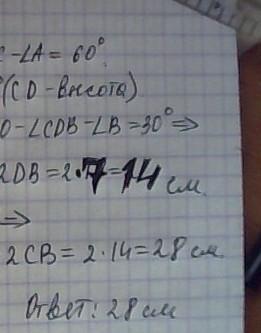 C-∠A = 60°
(CD-высота)
0-∠CDB-∠B=30° ⇒
2DB=2·7=14 см
⇒
2CB = 2·14=28 см
Ответ: 28 см